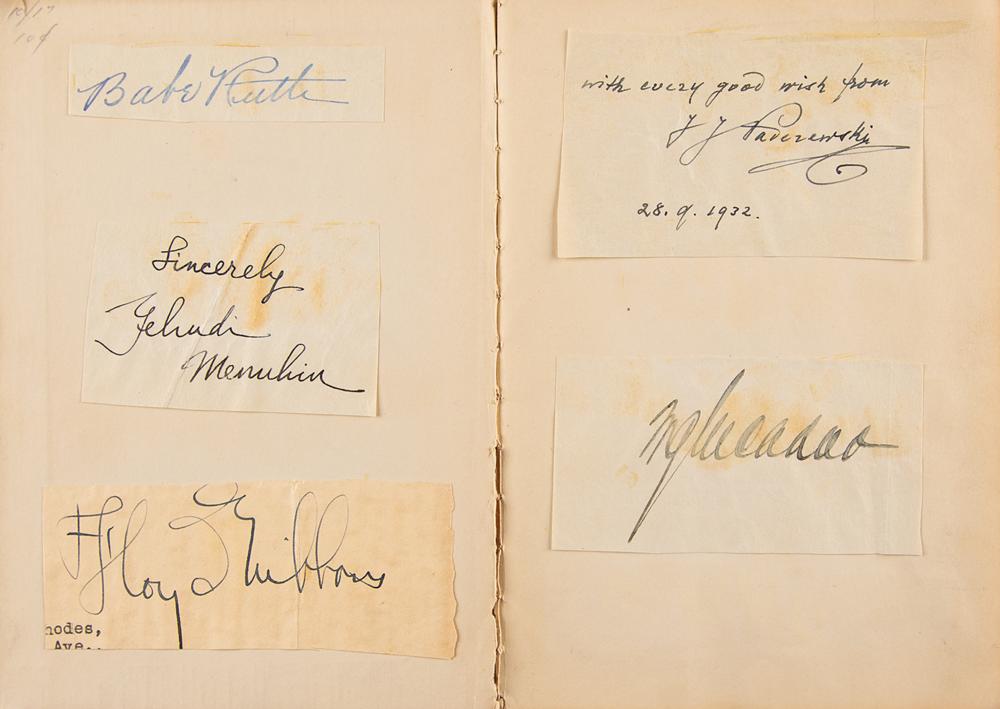 10¢
Babe Ruth
Sincerely
Yehudi
Menuhin
Floyd Gibbons
hodes,
Ave.
with every good wish from
I J Paderewski
28. 9. 1932.
WG McAdoo